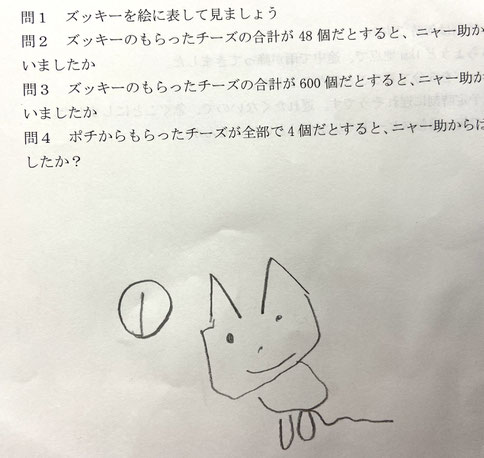 問1　ズッキーを絵に表して見ましょう
問2　ズッキーのもらったチーズの合計が48個だとすると、ニャー助か
いましたか
問3　ズッキーのもらったチーズの合計が600個だとすると、ニャー助か
いましたか
問4　ポチからもらったチーズが全部で4個だとすると、ニャー助からは
したか？
①